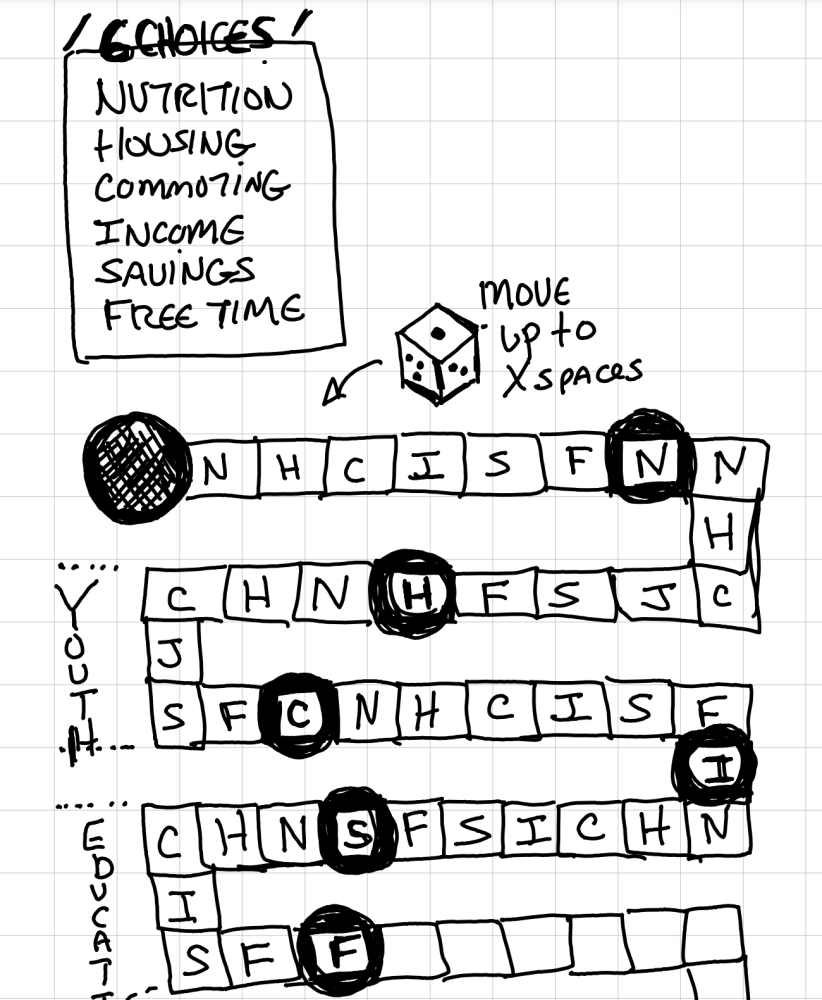 6 CHOICES
NUTRITION
HOUSING
COMMUTING
INCOME
SAVINGS
FREE TIME
MOVE
up to
X SPACES
N H C I S F N N
H
C H N H F S J C
J
S F C N H C I S F
I
C H N S F S I C H N
I
S F F
YOUTH
EDUCATI